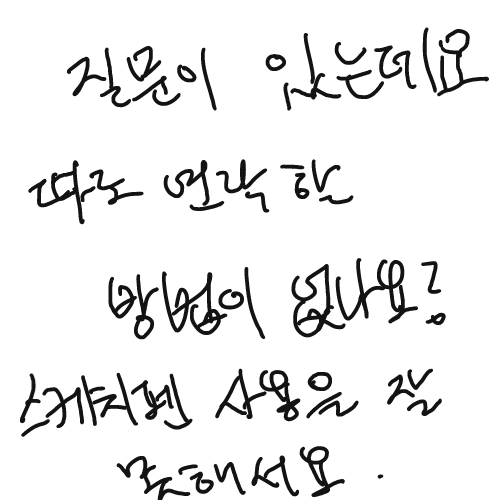 질문이 있는데요
따로 연락 할
방법이 없나요?
스케치펜 사용을 잘
못해서요.